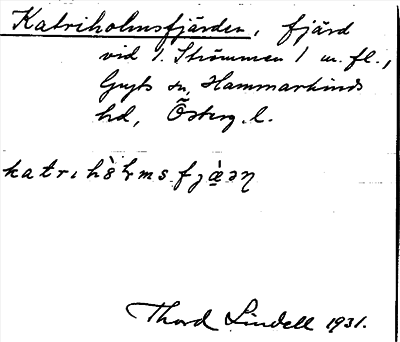 Katriholmsfjärden, fjärd
vid 1. Strömmen 1 m. fl.,
Gryts sn, Hammarkinds
hd, Österg. l.
katrıhò̤ɫmsfjæ̀əη
Thord Lindell 1931.